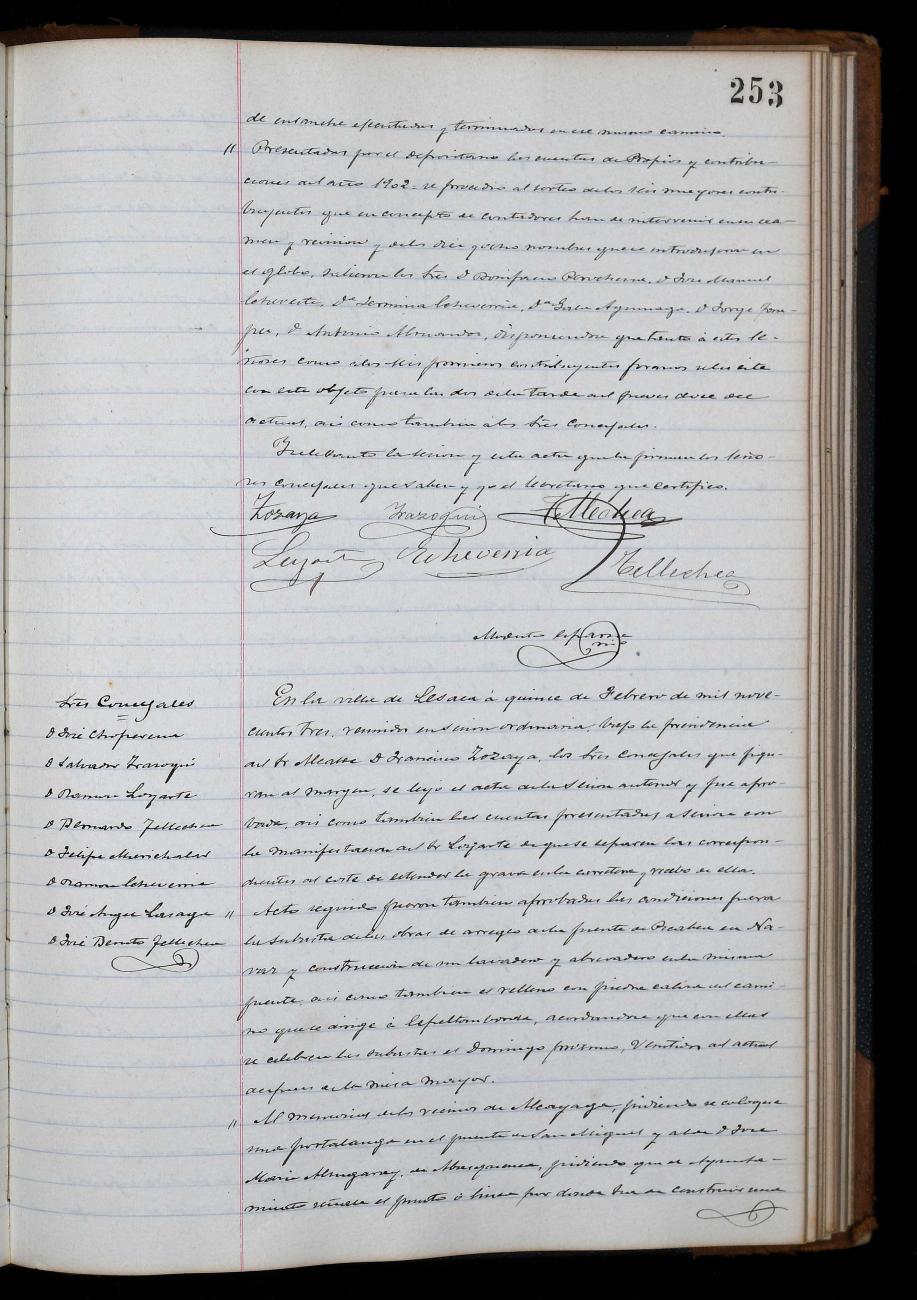 253
de ensanche ejecutadas y terminadas en ese mismo camino.
" Presentadas por el depositario las cuentas de Propios y contribu-
ciones del año 1902 = se procedió al sorteo de los seis mayores contri-
buyentes que en concepto de contadores han de intervenir en su exa-
men y revision y de los diez y ocho nombres que se introdujeron en
el globo, salieron los Sres D Bonifacio D. José Manuel
Echeverte, Dª Echeverria, Dª D. Jorge
D. Antonio disponiendose que tanto á estos Se-
ñores como á los seis primeros contribuyentes foranos se les cite
con este objeto para las dos de la tarde del jueves doce del
actual, asi como tambien á los Sres Concejales.
Y se levantó la sesion y esta acta que la firman los Seño-
res concejales que saben y yo el Secretario que certifico.
Zozaya Irazoqui Tellechea
Loyarte Echeverria Tellechea
Sres Concejales
D José Choperena
D Salvador Irazoqui
D Ramon Loyarte
D Bernardo Tellechea
D Felipe Marichalar
D Ramon Echeverria
D José Angel Lasaga
D José Benito Tellechea
En la villa de Lesaca á quince de Febrero de mil nove-
cientos tres, reunidos en sesion ordinaria, bajo la presidencia
del Sr Alcalde D Francisco Zozaya, los Sres Concejales que figu-
ran al margen, se leyó el acta de la sesion anterior y fue apro-
vada, asi como tambien las cuentas presentadas a sesion con
la manifestacion del Sr Loyarte de que se separen las correspon-
dientes al coste de estender la grava en la carretera y recibo de ella.
" Acto seguido fueron tambien aprobadas las condiciones para
la subasta de las obras de arreglo de la fuente de en Na-
vaz y construccion de un lavadero y abrevadero en la misma
fuente, asi como tambien el relleno con piedra caliza del cami-
no que se dirige á acordandose que con ellas
se celebren las subastas el Domingo proximo, Veintidos del actual
despues de la misa mayor.
" Al memorial de los vecinos de Alcayaga, pidiendo se coloque
una portalanga en el puente de San Miguel y al de D José
Maria de pidiendo que el Ayunta-
miento señale el punto ó linea por donde ha de construir una